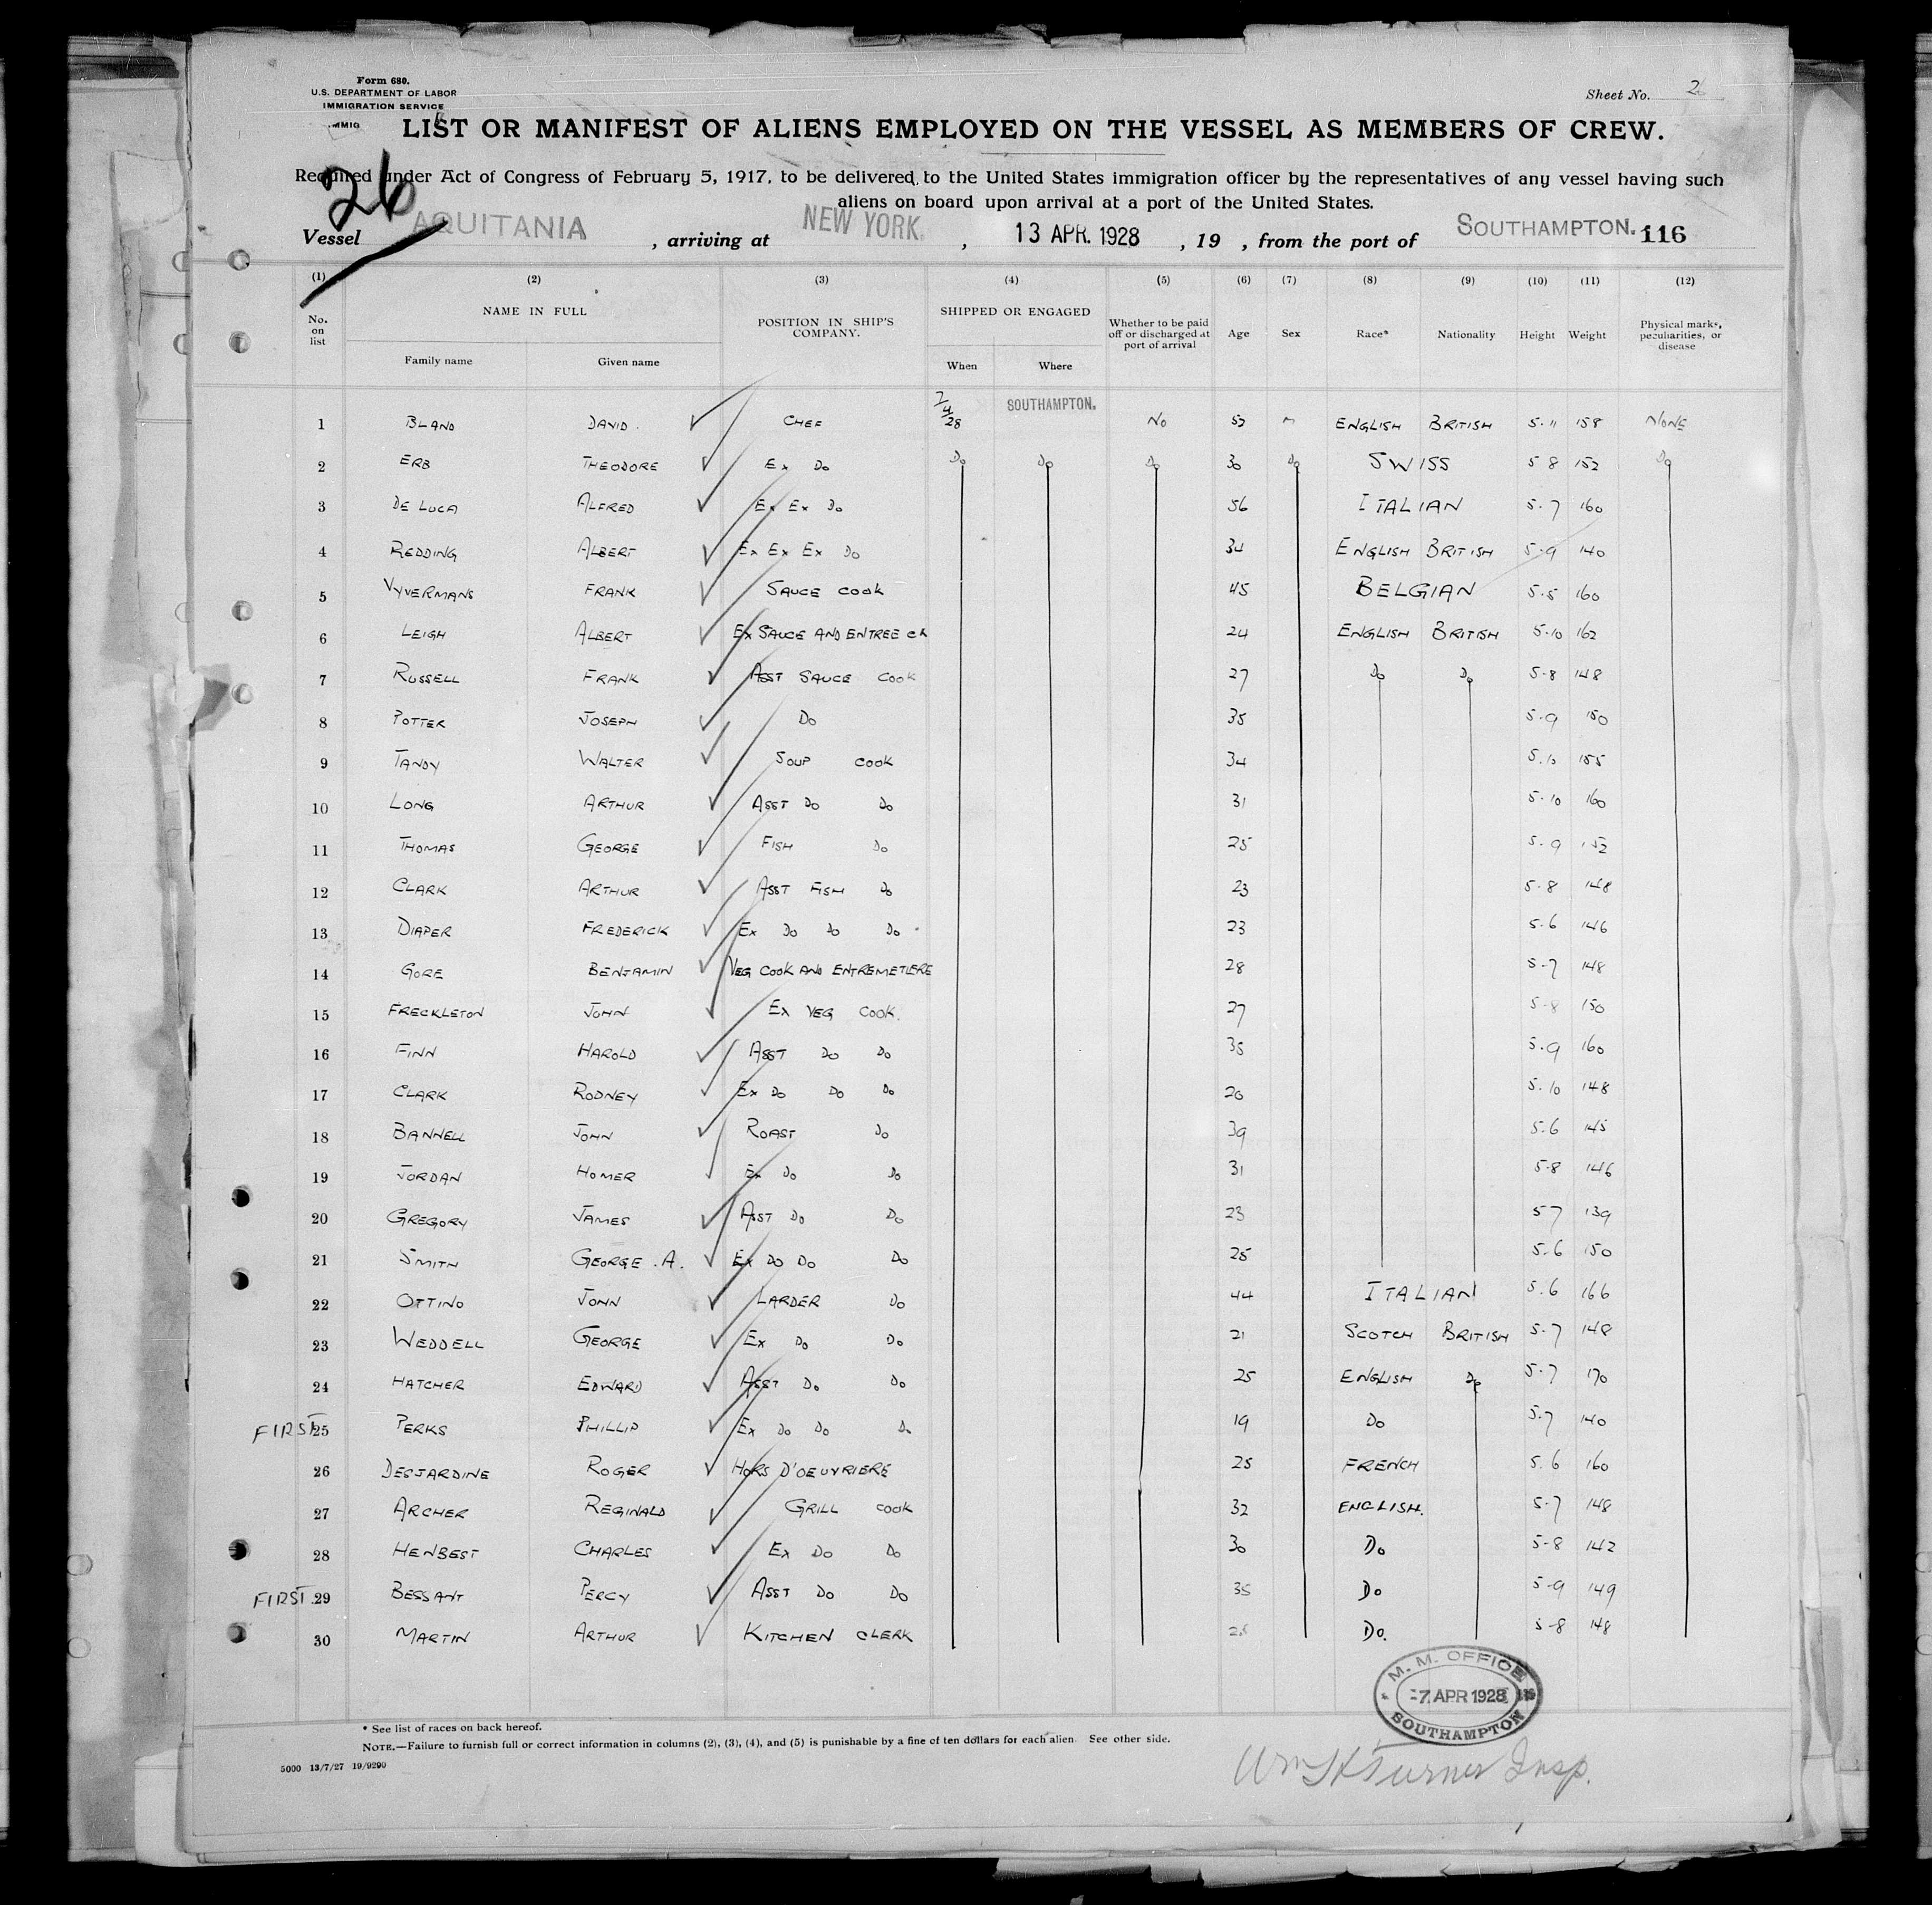 Form 680.
U.S. DEPARTMENT OF LABOR
IMMIGRATION SERVICE
Sheet No. 2
LIST OR MANIFEST OF ALIENS EMPLOYED ON THE VESSEL AS MEMBERS OF CREW.
26
Required under Act of Congress of February 5, 1917, to be delivered to the United States immigration officer by the representatives of any vessel having such
aliens on board upon arrival at a port of the United States.
Vessel AQUITANIA, arriving at NEW YORK, 13 APR. 1928, 19 , from the port of SOUTHAMPTON. 116
(1) (2) (3) (4) (5) (6) (7) (8) (9) (10) (11) (12)
No. on list NAME IN FULL Family name Given name POSITION IN SHIP'S COMPANY. SHIPPED OR ENGAGED When Where Whether to be paid off or discharged at port of arrival Age Sex Race* Nationality Height Weight Physical marks, peculiarities, or disease
1 BLAND DAVID. CHEF 7/4/28 SOUTHAMPTON. NO M ENGLISH BRITISH 5.11 158 NONE
2 ERB THEODORE EX DO DO DO DO 30 DO SWISS 5 8 152 DO
3 DE LUCA ALFRED EX EX DO 56 ITALIAN 5.7 160
4 REDDING ALBERT EX EX EX DO 34 ENGLISH BRITISH 5.9 140
5 VYVERMANS FRANK SAUCE COOK 45 BELGIAN 5.5 160
6 LEIGH ALBERT EX SAUCE AND ENTREE CK 24 ENGLISH BRITISH 5.10 162
7 RUSSELL FRANK ASST SAUCE COOK 27 DO DO 5.8 148
8 POTTER JOSEPH DO 35 5.9 150
9 TANDY WALTER SOUP COOK 34 5.10 155
10 LONG ARTHUR ASST DO DO 31 5.10 160
11 THOMAS GEORGE FISH DO 25 5.9 152
12 CLARK ARTHUR ASST FISH DO 23 5.8 148
13 DIAPER FREDERICK EX DO DO DO 23 5.6 146
14 GORE BENJAMIN VEG COOK AND ENTREMETIERE 28 5.7 148
15 FRECKLETON JOHN EX VEG COOK. 27 5-8 150
16 FINN HAROLD ASST DO DO 35 5.9 160
17 CLARK RODNEY EX DO DO DO 20 5.10 148
18 BANNELL JOHN ROAST DO 39 5.6 145
19 JORDAN HOMER EX DO DO 31 5.8 146
20 GREGORY JAMES ASST DO DO 23 5 7 139
21 SMITH GEORGE. A. EX DO DO DO 25 5.6 150
22 OTTINO JOHN LARDER DO 44 ITALIAN 5.6 166
23 WEDDELL GEORGE EX DO DO 21 SCOTCH BRITISH 5.7 148
24 HATCHER EDWARD ASST DO DO 25 ENGLISH DO 5.7 170
FIRST 25 PERKS PHILLIP EX DO DO DO 19 DO 5.7 140
26 DESJARDINE ROGER HORS D'OEUVRIERE 25 FRENCH 5.6 160
27 ARCHER REGINALD GRILL COOK 32 ENGLISH. 5.7 148
28 HENBEST CHARLES EX DO DO 30 DO 5-8 142
FIRST. 29 BESSANT PERCY ASST DO DO 35 DO 5-9 149
30 MARTIN ARTHUR KITCHEN CLERK DO. 5-8 148
M. M. OFFICE
-7 APR 1928
SOUTHAMPTON
* See list of races on back hereof.
NOTE.—Failure to furnish full or correct information in columns (2), (3), (4), and (5) is punishable by a fine of ten dollars for each alien See other side.
5000 13/7/27 19/9290
Turner Insp.